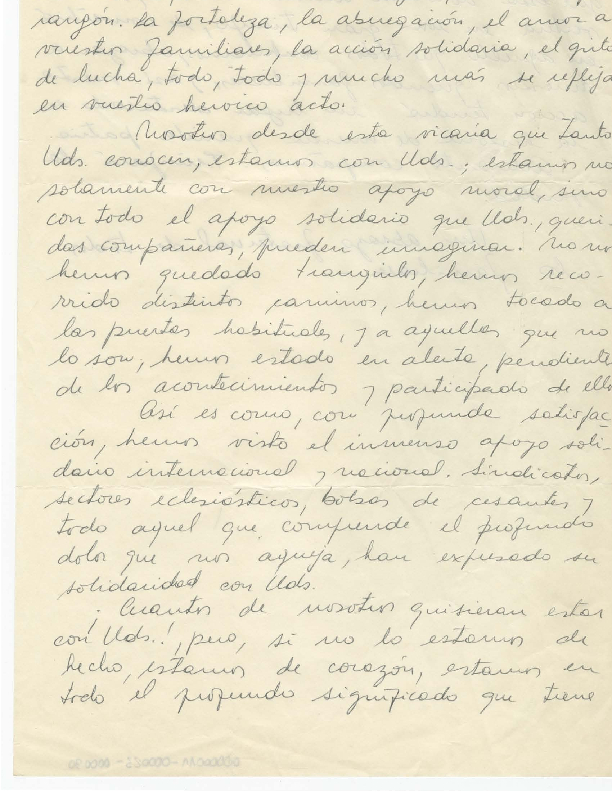 rangón. La fortaleza, la abnegación, el amor a
vuestros familiares, la acción solidaria, el grito
de lucha, todo, todo y mucho más se refleja
en vuestro heroico acto.
Nosotros desde esta vicaría que tanto
Uds. conocen, estamos con Uds.; estamos no
solamente con nuestro apoyo moral, sino
con todo el apoyo solidario que Uds., queri-
das compañeras, pueden imaginar. No nos
hemos quedado tranquilos, hemos reco-
rrido distintos caminos, hemos tocado a
las puertas habituales, y a aquellas que no
lo son, hemos estado en alerta, pendiente
de los acontecimientos y participado de ello
Así es como, con profunda satisfac-
ción, hemos visto el inmenso apoyo soli-
dario internacional y nacional. Sindicatos,
sectores eclesiásticos, bolsas de cesantes y
todo aquel que comprende el profundo
dolor que nos aqueja, han expresado su
solidaridad con Uds.
¡Cuantos de nosotros quisieran estar
con Uds.!, pero, si no lo estamos de
hecho, estamos de corazón, estamos en
todo el profundo significado que tiene